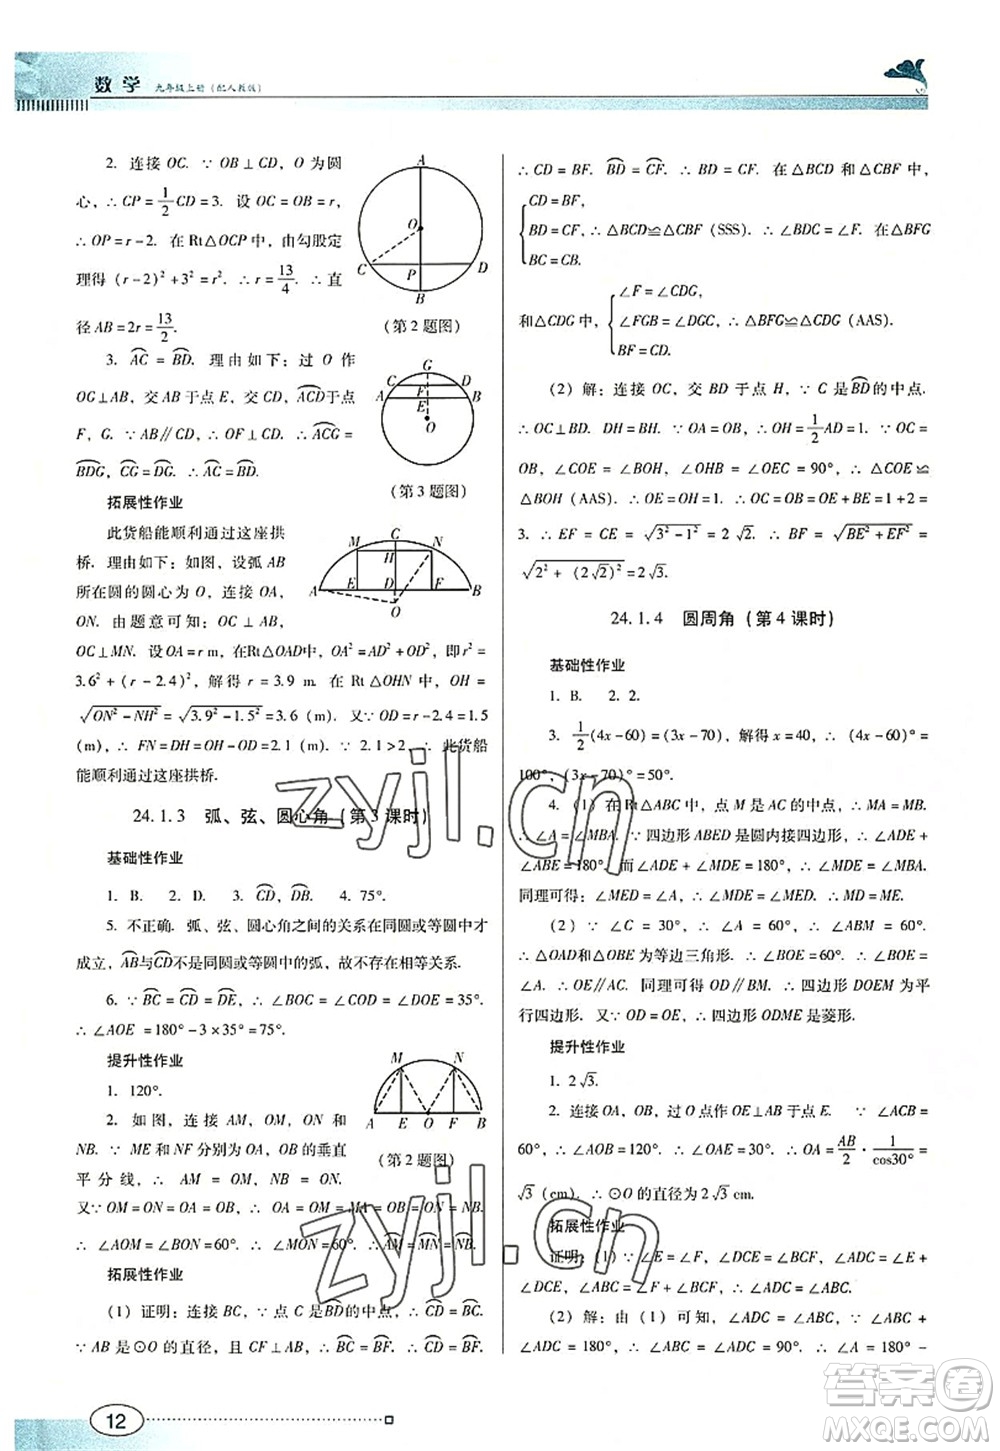 数学 九年级上册(配人教版)
2. 连接 OC. ∵ OB⊥CD，O 为圆
心，∴ CP=1/2 CD=3. 设 OC=OB=r，
∴ OP=r-2. 在 Rt△OCP 中，由勾股定
理得 (r-2)²+3²=r²，∴ r=13/4. ∴ 直
径 AB=2r=13/2.
A
O
C
P
D
B
(第 2 题图)
3. ⌒AC=⌒BD. 理由如下：过 O 作
OG⊥AB，交 AB 于点 E，交 CD，⌒ACD于点
F，G. ∵ AB∥CD，∴ OF⊥CD. ∴ ⌒ACG=
⌒BDG，⌒CG=⌒DG. ∴ ⌒AC=⌒BD.
G
C
F
D
A
E
B
O
(第 3 题图)
拓展性作业
此货船能顺利通过这座拱
桥. 理由如下：如图，设弧 AB
所在的圆的圆心为 O，连接 OA，
ON. 由题意可知：OC⊥AB，
OC⊥MN. 设 OA=r m，在Rt△OAD中，OA²=AD²+OD²，即r²=
3.6²+(r-2.4)²，解得 r=3.9 m. 在 Rt△OHN 中，OH=
√(ON²-NH²)=√(3.9²-1.5²)=3.6 (m). 又∵ OD=r-2.4=1.5
(m)，∴ FN=DH=OH-OD=2.1 (m). ∵ 2.1>2，∴ 此货船
能顺利通过这座拱桥.
C
M
H
N
A
E
D
F
B
O
24.1.3 弧、弦、圆心角 (第 3 课时)
基础性作业
1. B. 2. D. 3. ⌒CD，⌒DB. 4. 75°.
5. 不正确. 弧、弦、圆心角之间的关系在同圆或等圆中才
成立，⌒AB与⌒CD不是同圆或等圆中的弧，故不存在相等关系.
6. ∵ ⌒BC=⌒CD=⌒DE，∴ ∠BOC=∠COD=∠DOE=35°.
∴ ∠AOE=180°-3×35°=75°.
提升性作业
1. 120°.
2. 如图，连接 AM，OM，ON 和
NB. ∵ ME 和 NF 分别为 OA，OB 的垂直
平分线，∴ AM=OM，ON=NB.
又∵ OM=ON=OA=OB，∴ OA=OM=MA=ON=OB=NB.
∴ ∠AOM=∠NOB=60°. ∴ ∠MON=60°. ∴ ⌒AM=⌒MN=⌒NB.
M
N
A
E
O
F
B
(第 2 题图)
拓展性作业
(1) 证明：连接 BC，∵ 点 C 是⌒BD的中点，∴ ⌒CD=⌒BC.
∵ AB 是 ⊙O 的直径，且 CF⊥AB，∴ ⌒BC=⌒BF. ∴ ⌒CD=⌒BF.
∴ CD=BF. ⌒BD=⌒CF. ∴ BD=CF. 在 △BCD 和 △CBF 中，
CD=BF，
BD=CF，∴ △BCD≌△CBF (SSS). ∴ ∠BDC=∠F. 在△BFG
BC=CB.
∠F=∠CDG，
和△CDG 中，∠FGB=∠DGC，∴ △BFG≌△CDG (AAS).
BF=CD.
(2) 解：连接 OC，交 BD 于点 H，∵ C 是⌒BD的中点.
∴ OC⊥BD. DH=BH. ∵ OA=OB，∴ OH=1/2 AD=1. ∵ OC=
OB，∠COE=∠BOH，∠OHB=∠OEC=90°，∴ △COE≌
△BOH (AAS). ∴ OE=OH=1. ∴ BE=OE+OB=BE=1+2=
3. ∴ EF=CE=√(3²-1²)=2√2. ∴ BF=√(BE²+EF²)=
√(2²+(2√2)²)=2√3.
24.1.4 圆周角 (第 4 课时)
基础性作业
1. B. 2. 2.
3. 1/2(4x-60)=(3x-70)，解得 x=40，∴ (4x-60)°=
100°，(3x-70)°=50°.
4. (1) 在Rt△ABC中，点 M 是AC的中点，∴ MA=MB.
∴ ∠A=∠MBA. ∵ 四边形 ABED 是圆内接四边形，∴ ∠A+
∠ABE=180°. 而∠ADE+∠MDE=180°，∴ ∠MDE=∠MBA.
同理可得：∠MED=∠A，∴ ∠MDE=∠MED. ∴ MD=ME.
(2) ∵ ∠C=30°，∴ ∠A=60°，∴ ∠ABM=60°.
∴ △OAD和△OBE 为等边三角形，∴ ∠BOE=60°. ∴ ∠BOE=
∠A. ∴ OE∥AC. 同理可得：OD∥BM，∴ 四边形 DOEM 为平
行四边形. 又∵ OD=OE，∴ 四边形 ODME 是菱形.
提升性作业
1. 2√3.
2. 连接OA，OB，过 O 点作 OE⊥AB于点 E. ∵ ∠ACB=
60°，∴ ∠AOB=120°，∴ ∠OAE=30°. ∴ OA=AB/2·1/cos30°=
√3 (cm). ∴ ⊙O 的直径为 2√3 cm.
拓展性作业
证明：(1) ∵ ∠E=∠F，∠DCE=∠BCF，∴ ∠ADC=∠E+
∠DCE，∠ABC=∠F+∠BCF，∴ ∠ADC=∠ABC.
(2) 解：由 (1) 可知，∠ADC=∠ABC，∵ ∠ABC+
∠ADC=180°，∴ ∠ABC=∠ADC=90°. ∴ ∠A=90°-
12
zyjl.cn
zyjl.cn
答案圈
MXQE.COM